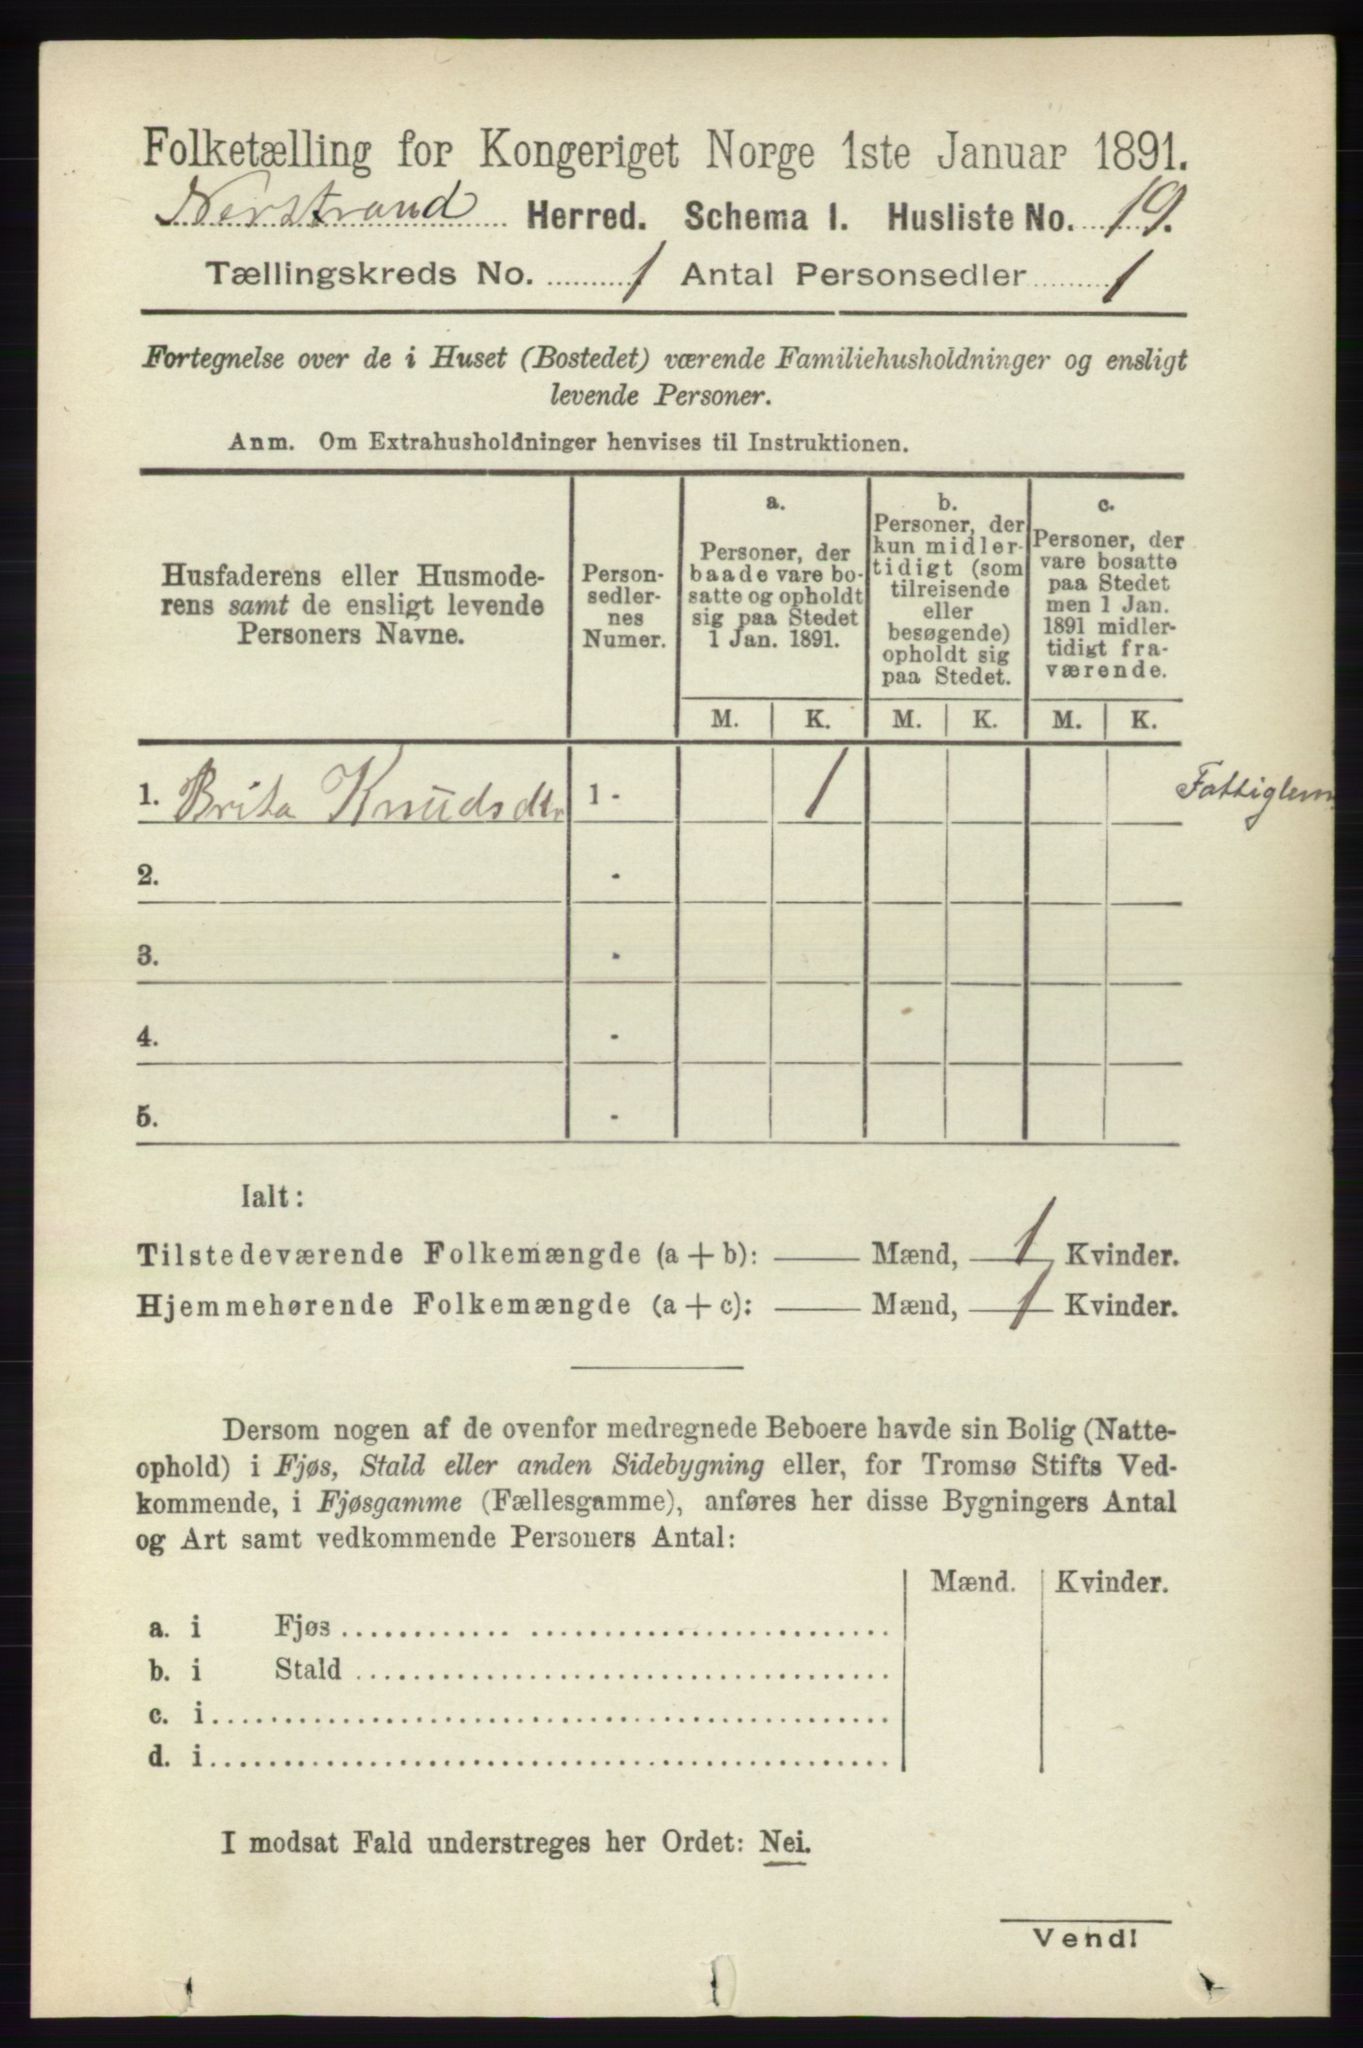 Folketælling for Kongeriget Norge 1ste Januar 1891.
Nerstrand Herred. Schema 1. Husliste No. 19.
Tællingskreds No. 1 Antal Personsedler 1
Fortegnelse over de i Huset (Bostedet) værende Familiehusholdninger og ensligt
levende Personer.
Anm. Om Extrahusholdninger henvises til Instruktionen.
Husfaderens eller Husmode-
rens samt de ensligt levende
Personers Navne.
Person-
sedler-
nes
Numer.
a.
Personer, der
baade vare bo-
satte og opholdt
sig paa Stedet
1 Jan. 1891.
b.
Personer, der
kun midler-
tidigt (som
tilreisende
eller
besøgende)
opholdt sig
paa Stedet.
c.
Personer, der
vare bosatte
paa Stedet
men 1 Jan.
1891 midler-
tidigt fra-
værende.
M. K. M. K. M. K.
1. Brita Knudsdtr 1 - 1 Fattiglem
2. -
3. -
4. -
5. -
Ialt:
Tilstedeværende Folkemængde (a + b): Mænd, 1 Kvinder.
Hjemmehørende Folkemængde (a + c): Mænd, 1 Kvinder.
Dersom nogen af de ovenfor medregnede Beboere havde sin Bolig (Natte-
ophold) i Fjøs, Stald eller anden Sidebygning eller, for Tromsø Stifts Ved-
kommende, i Fjøsgamme (Fællesgamme), anføres her disse Bygningers Antal
og Art samt vedkommende Personers Antal:
Mænd. Kvinder.
a. i Fjøs
b. i Stald
c. i
d. i
I modsat Fald understreges her Ordet: Nei.
Vend!